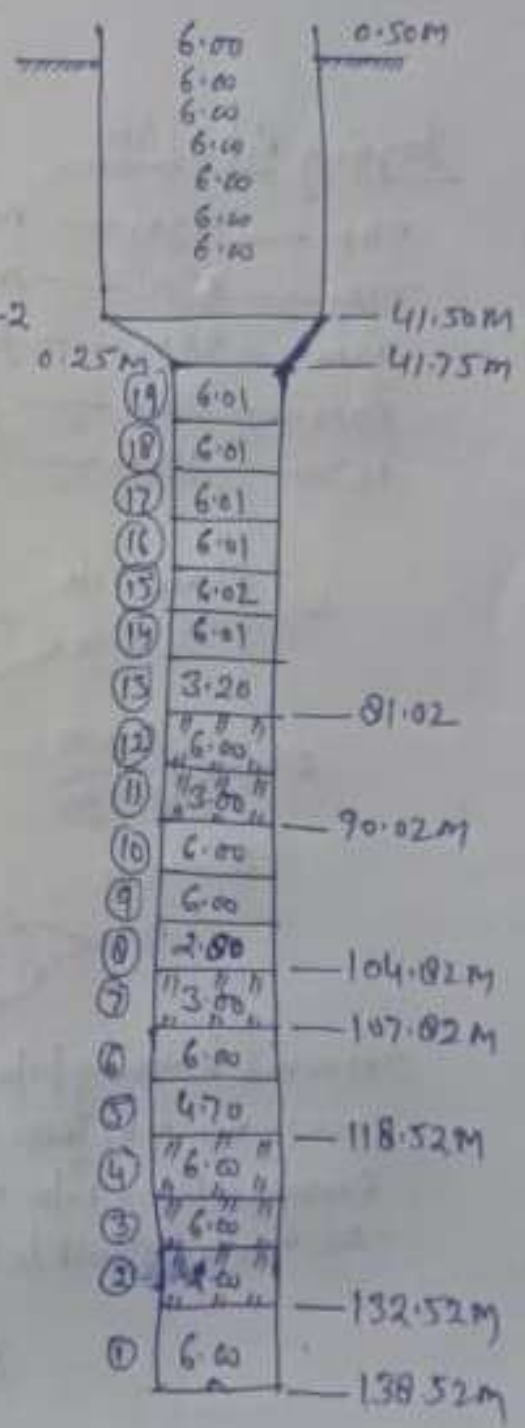 6.00 0.50M
6.00
6.00
6.00
6.00
6.00
6.00
-2
41.50M
0.25M 41.75M
19 6.01
18 6.01
17 6.01
16 6.01
15 6.02
14 6.01
13 3.20
81.02
12 6.00
11 3.00
90.02M
10 6.00
9 6.00
8 2.80
104.82M
7 3.00
107.82M
6 6.00
5 4.70
118.52M
4 6.00
3 6.00
2 2.00
132.52M
1 6.00
138.52M